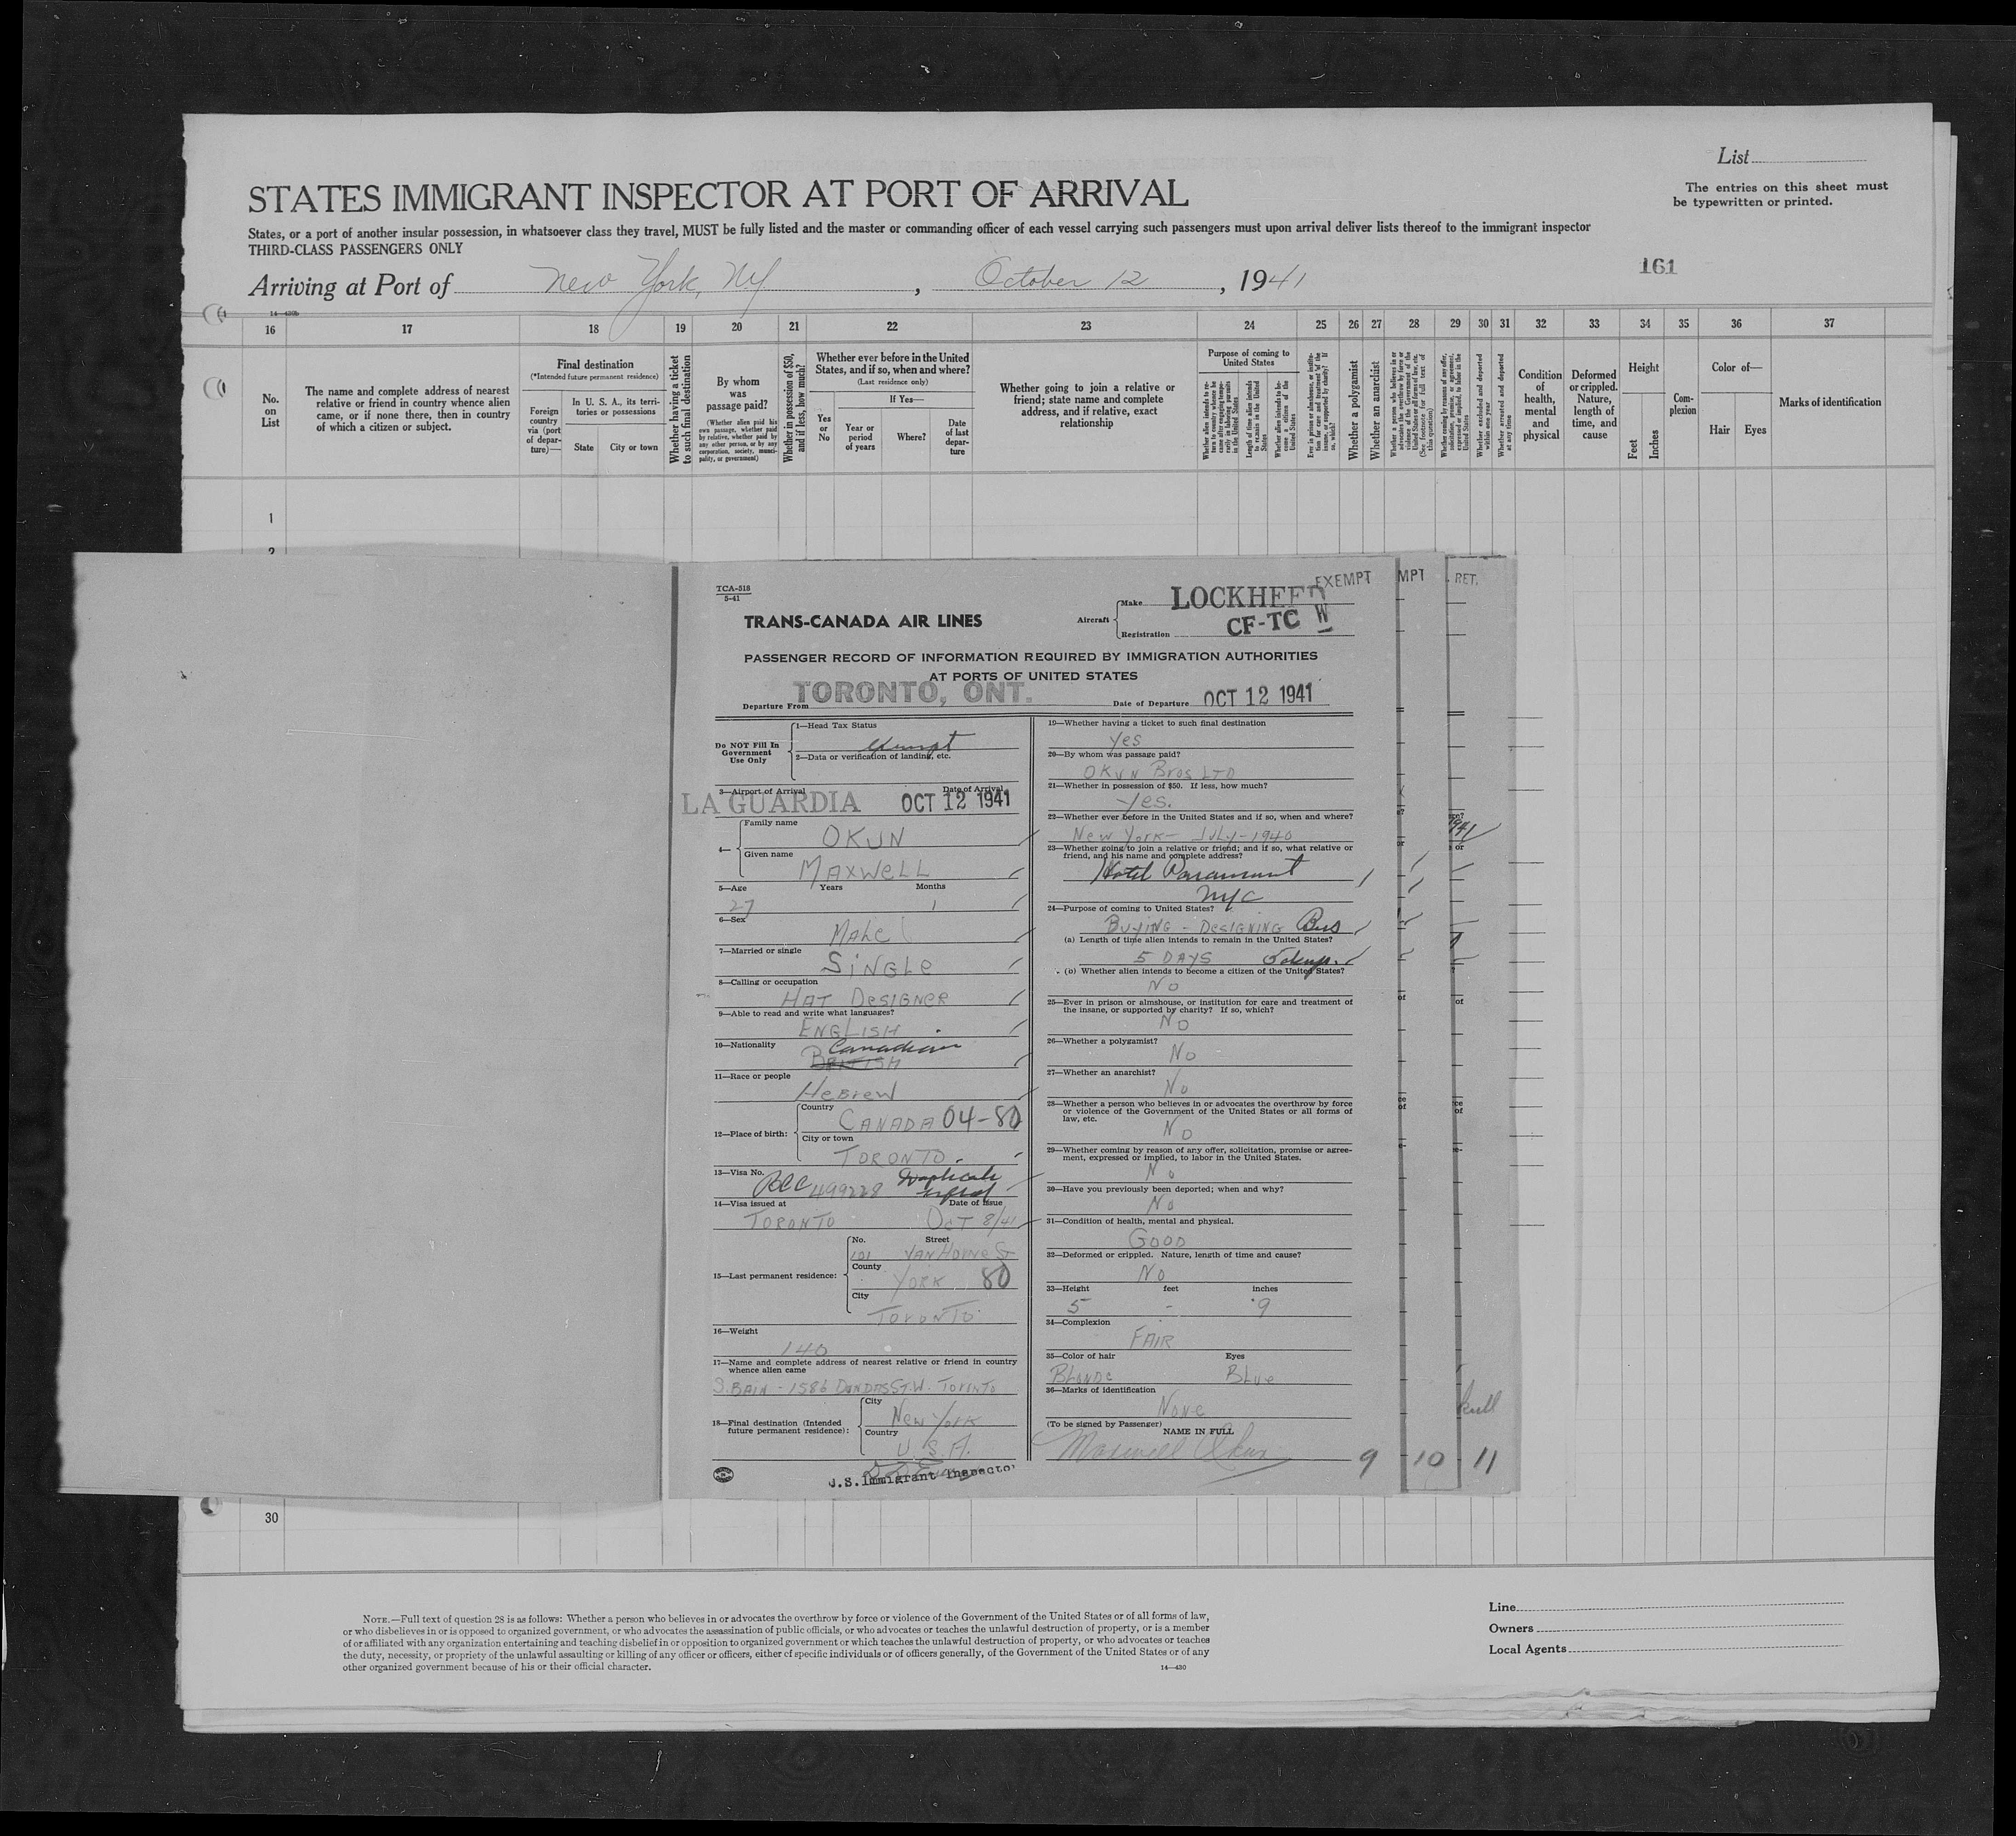 List
STATES IMMIGRANT INSPECTOR AT PORT OF ARRIVAL
The entries on this sheet must
be typewritten or printed.
States, or a port of another insular possession, in whatsoever class they travel, MUST be fully listed and the master or commanding officer of each vessel carrying such passengers must upon arrival deliver lists thereof to the immigrant inspector
THIRD-CLASS PASSENGERS ONLY
161
Arriving at Port of New York, NY, October 12, 1941
16 17 18 19 20 21 22 23 24 25 26 27 28 29 30 31 32 33 34 35 36 37
No. on List
The name and complete address of nearest
relative or friend in country whence alien
came, or if none there, then in country
of which a citizen or subject.
Final destination
(*Intended future permanent residence)
Foreign country via (port of departure)—
In U. S. A., its territories or possessions
State
City or town
Whether having a ticket to such final destination
By whom was passage paid?
(Whether alien paid his own passage, whether paid by relative, whether paid by any other person, or by any corporation, society, municipality, or government)
Whether in possession of $50, and if less, how much?
Whether ever before in the United
States, and if so, when and where?
(Last residence only)
Yes or No
If Yes—
Year or period of years
Where?
Date of last departure
Whether going to join a relative or
friend; state name and complete
address, and if relative, exact
relationship
Purpose of coming to
United States
Whether a polygamist
Whether an anarchist
Condition of health, mental and physical
Deformed or crippled. Nature, length of time, and cause
Height
Feet
Inches
Complexion
Color of—
Hair
Eyes
Marks of identification
1
2
TCA-518
5-41
TRANS-CANADA AIR LINES
Aircraft
Make LOCKHEED
Registration CF-TC W
EXEMPT
MPT
RET.
PASSENGER RECORD OF INFORMATION REQUIRED BY IMMIGRATION AUTHORITIES
AT PORTS OF UNITED STATES
Departure From TORONTO, ONT.
Date of Departure OCT 12 1941
Do NOT Fill In
Government
Use Only
1—Head Tax Status
Exempt
2—Data or verification of landing, etc.
3—Airport of Arrival LA GUARDIA
Date of Arrival OCT 12 1941
4—
Family name OKUN
Given name MAXWELL
5—Age Years Months
27 1
6—Sex MALE
7—Married or single SINGLE
8—Calling or occupation
HAT DESIGNER
9—Able to read and write what languages?
ENGLISH
10—Nationality Canadian
BRITISH
11—Race or people
HEBREW
12—Place of birth:
Country CANADA 04-80
City or town
TORONTO
13—Visa No. BCC 499228 Duplicate
14—Visa issued at Date of Issue
TORONTO OCT 8/41
15—Last permanent residence:
No. Street
101 VAN HORNE ST
County YORK 80
City
TORONTO
16—Weight
140
17—Name and complete address of nearest relative or friend in country
whence alien came
S. BAIN - 1586 DUNDAS ST. W. TORONTO
18—Final destination (Intended
future permanent residence):
City
New York
Country
U.S.A.
U.S. Immigrant Inspector
19—Whether having a ticket to such final destination
Yes
20—By whom was passage paid?
OKUN BROS LTD
21—Whether in possession of $50. If less, how much?
Yes.
22—Whether ever before in the United States and if so, when and where?
New York - July - 1940
23—Whether going to join a relative or friend; and if so, what relative or
friend, and his name and complete address?
Hotel Paramount
NYC
24—Purpose of coming to United States?
BUYING - DESIGNING Bus
(a) Length of time alien intends to remain in the United States?
5 DAYS 5 days.
(b) Whether alien intends to become a citizen of the United States?
NO
25—Ever in prison or almshouse, or institution for care and treatment of
the insane, or supported by charity? If so, which?
NO
26—Whether a polygamist?
No
27—Whether an anarchist?
No
28—Whether a person who believes in or advocates the overthrow by force
or violence of the Government of the United States or all forms of
law, etc.
NO
29—Whether coming by reason of any offer, solicitation, promise or agree-
ment, expressed or implied, to labor in the United States.
No
30—Have you previously been deported; when and why?
No
31—Condition of health, mental and physical.
GOOD
32—Deformed or crippled. Nature, length of time and cause?
No
33—Height feet inches
5 - 9
34—Complexion
FAIR
35—Color of hair Eyes
BLONDE BLUE
36—Marks of identification
None
(To be signed by Passenger)
NAME IN FULL
Maxwell Okun
9 - 10 - 11
30
NOTE.—Full text of question 28 is as follows: Whether a person who believes in or advocates the overthrow by force or violence of the Government of the United States or of all forms of law,
or who disbelieves in or is opposed to organized government, or who advocates the assassination of public officials, or who advocates or teaches the unlawful destruction of property, or is a member
of or affiliated with any organization entertaining and teaching disbelief in or opposition to organized government or which teaches the unlawful destruction of property, or who advocates or teaches
the duty, necessity, or propriety of the unlawful assaulting or killing of any officer or officers, either of specific individuals or of officers generally, of the Government of the United States or of any
other organized government because of his or their official character.
14—430
Line
Owners
Local Agents